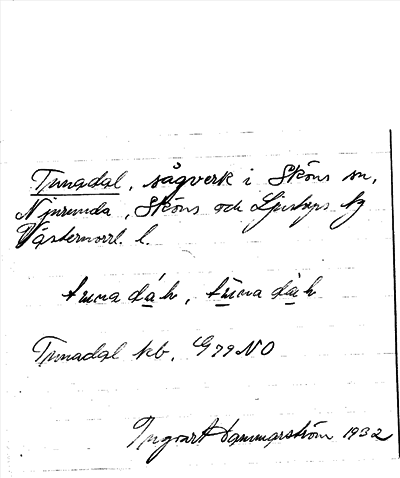 Tunadal, sågverk i Sköns sn,
Njurunda, Sköns och Ljustorps tg
Västernorrl. l.
tuna dáh, tūna dàh
Tunadal kb. G79NO
Ingvart Hammarström 1932